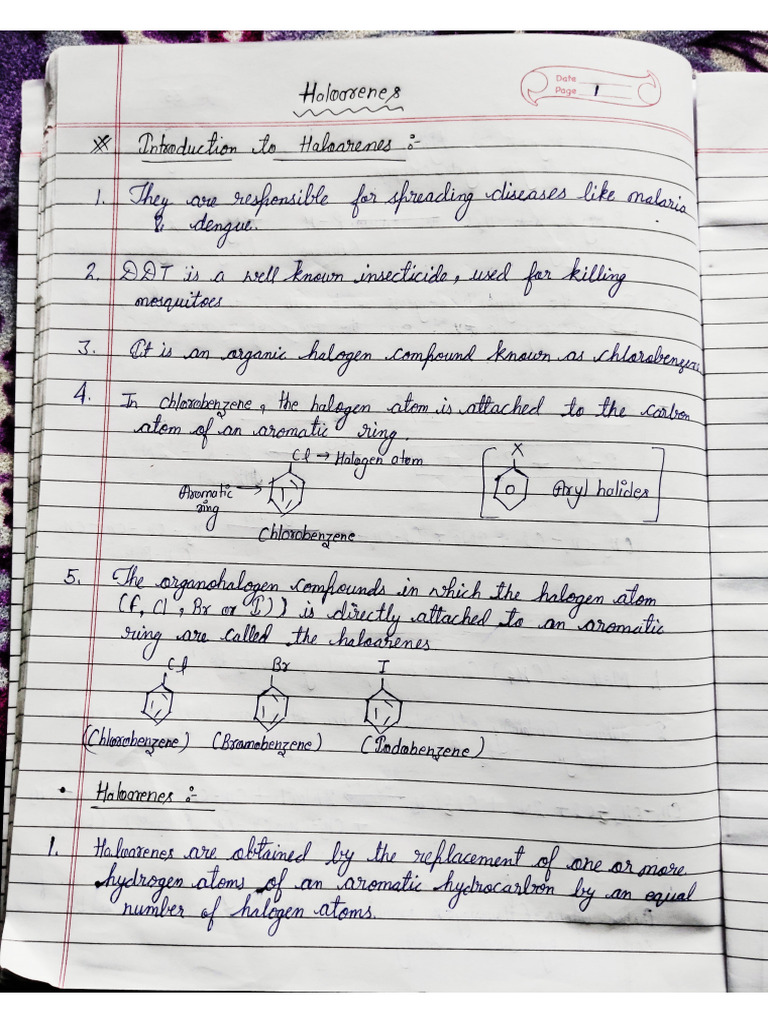 Haloarenes
Date
Page 1
* Introduction to Haloarenes :-
1. They are responsible for spreading diseases like malaria
& dengue.
2. DDT is a well known insecticide, used for killing
mosquitoes
3. It is an organic halogen compound known as chlorobenzene
4. In chlorobenzene, the halogen atom is attached to the carbon
atom of an aromatic ring.
Cl → Halogen atom
Aromatic →
ring
Chlorobenzene
X
Aryl halides
5. The organohalogen compounds in which the halogen atom
(F, Cl, Br or I)) is directly attached to an aromatic
ring are called the haloarenes
Cl Br I
(Chlorobenzene) (Bromobenzene) (Iodobenzene)
• Haloarenes :-
1. Haloarenes are obtained by the replacement of one or more
hydrogen atoms of an aromatic hydrocarbon by an equal
number of halogen atoms.